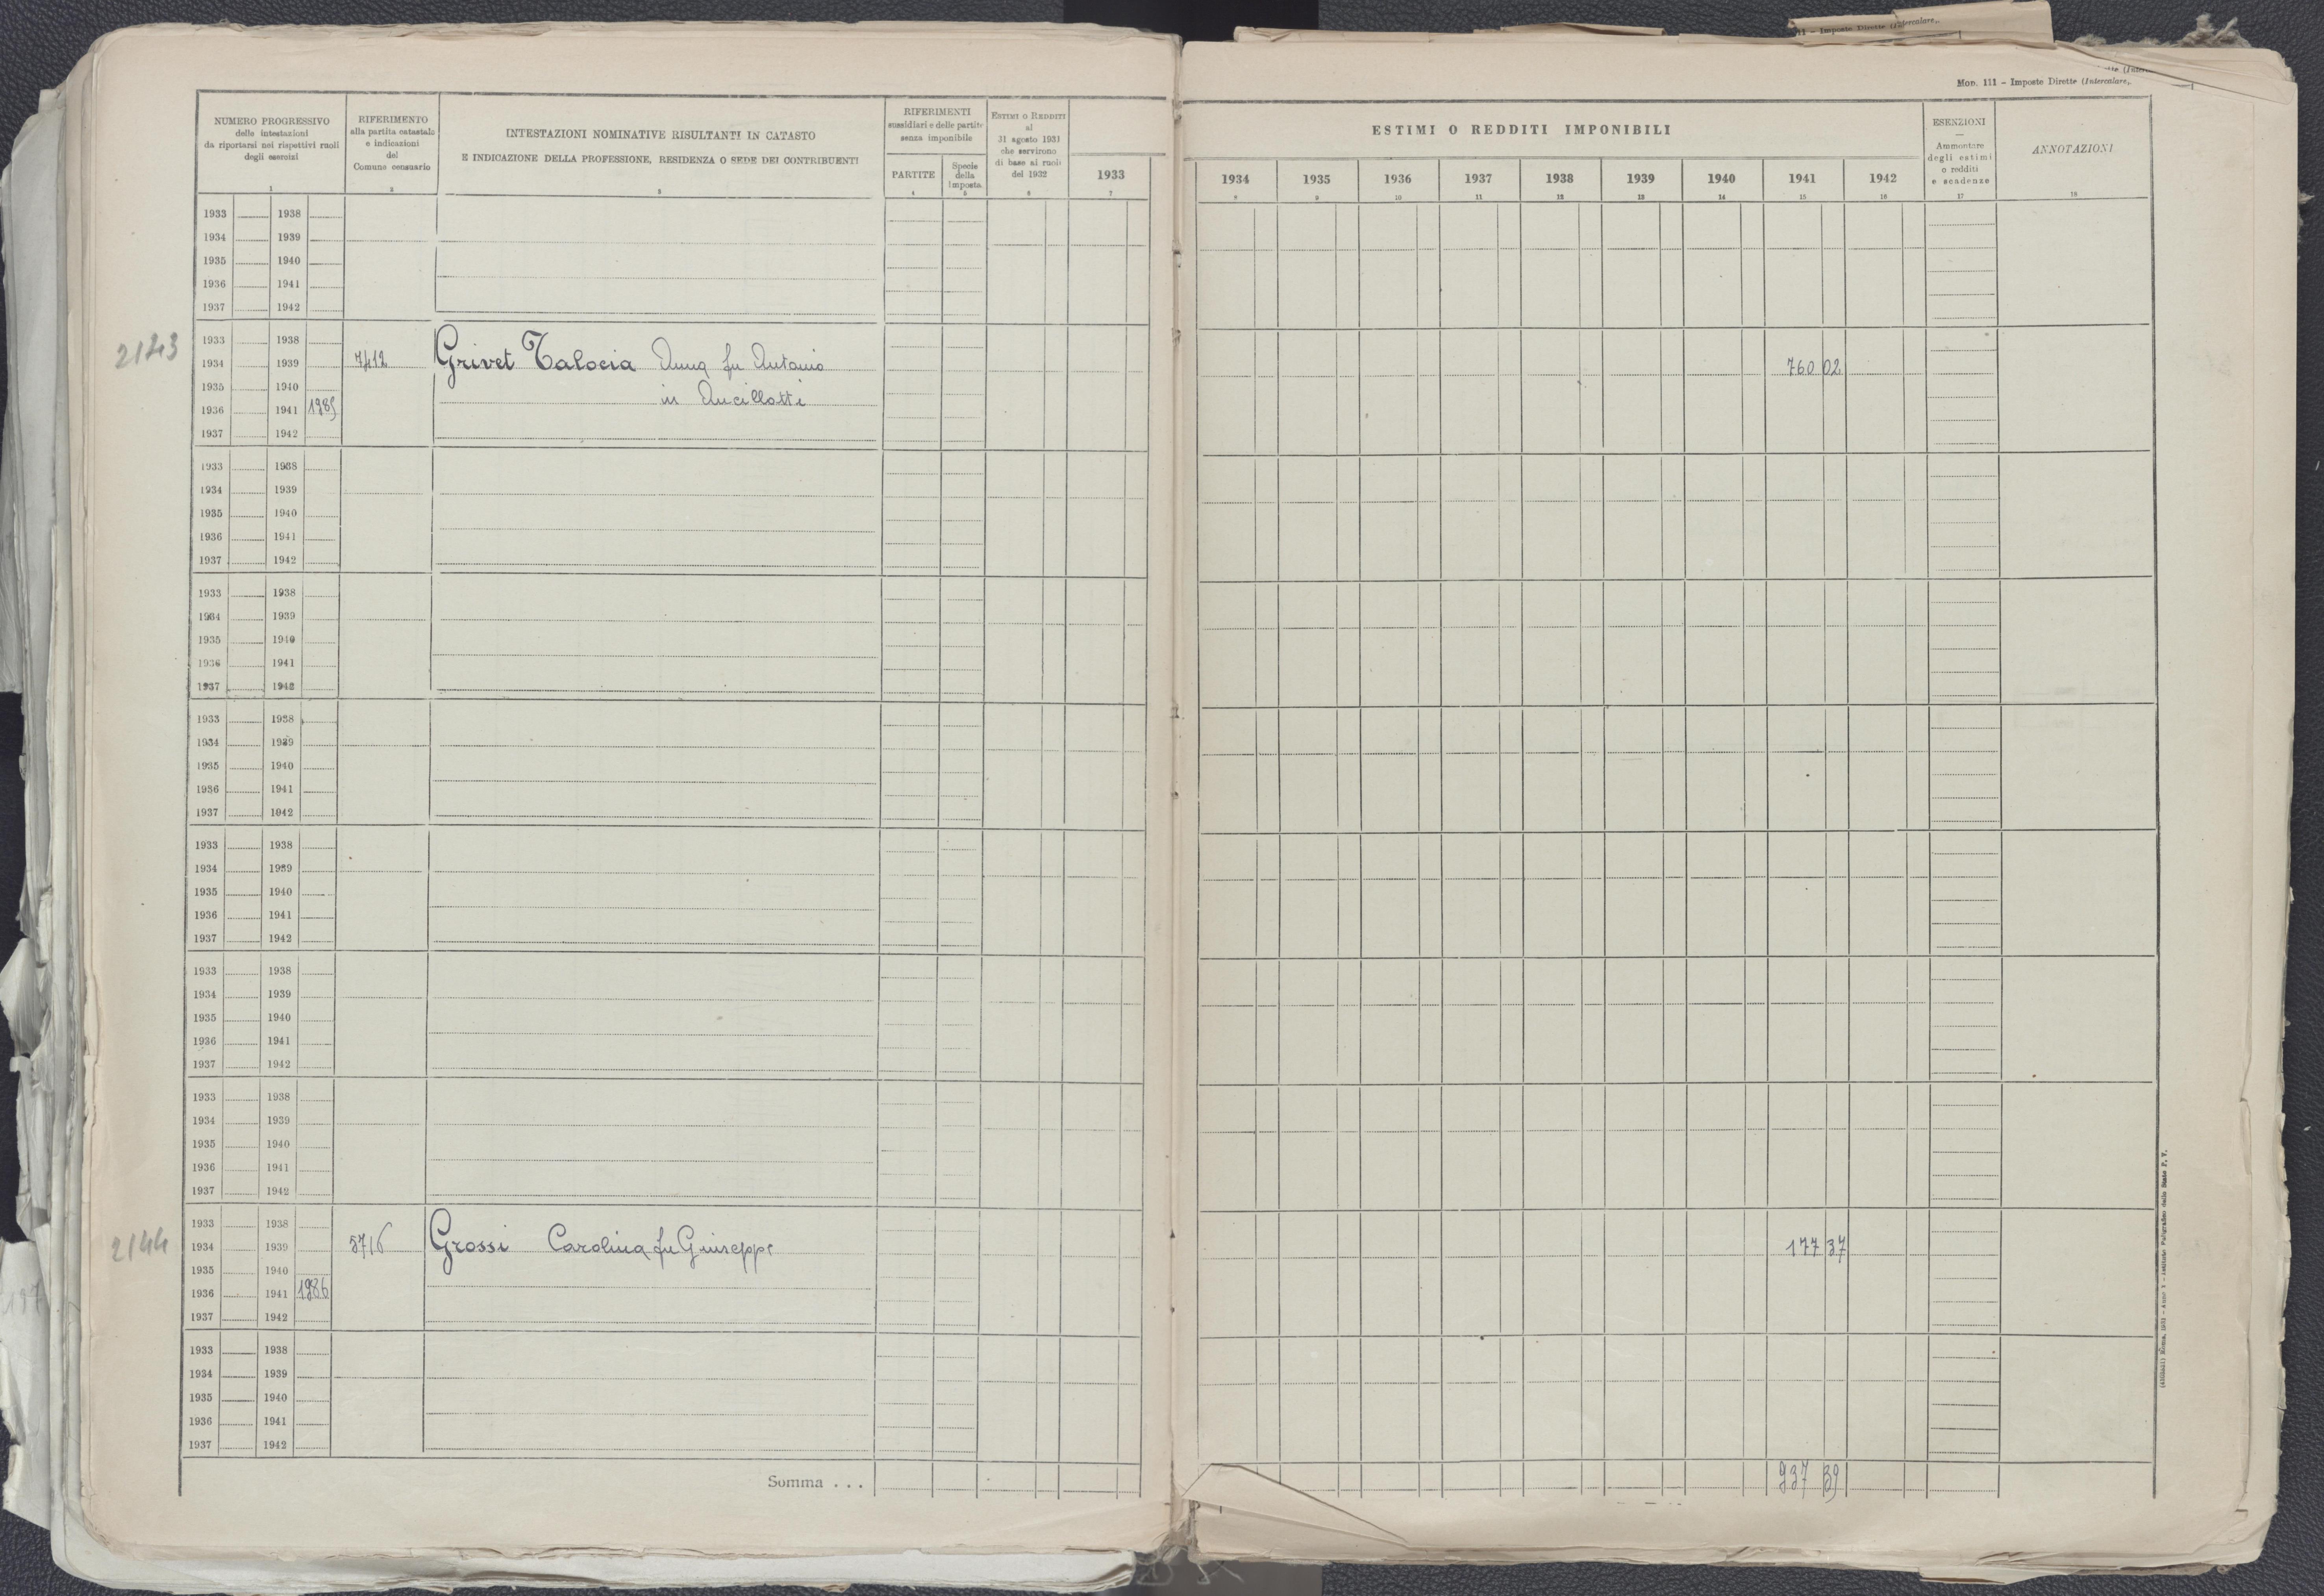 11 – Imposte Dirette (Intercalare,
Mod. 111 – Imposte Dirette (Intercalare,
NUMERO PROGRESSIVO
delle intestazioni
da riportarsi nei rispettivi ruoli
degli esercizi
1
RIFERIMENTO
alla partita catastale
e indicazioni
del
Comune censuario
2
INTESTAZIONI NOMINATIVE RISULTANTI IN CATASTO
E INDICAZIONE DELLA PROFESSIONE, RESIDENZA O SEDE DEI CONTRIBUENTI
3
RIFERIMENTI
sussidiari e delle partite
senza imponibile
PARTITE
4
Specie
della
Imposta
5
ESTIMI O REDDITI
al
31 agosto 1931
che servirono
di base ai ruoli
del 1932
6
1933
7
ESTIMI O REDDITI IMPONIBILI
1934 1935 1936 1937 1938 1939 1940 1941 1942
8 9 10 11 12 13 14 15 16
ESENZIONI
—
Ammontare
degli estimi
o redditi
e scadenze
17
ANNOTAZIONI
18
1933 1938
1934 1939
1935 1940
1936 1941
1937 1942
2143
1933 1938
1934 1939 7412 Grivet Talocia Anna fu Antonio 760 02
1935 1940
1936 1941 1985 in Ancillotti
1937 1942
1933 1938
1934 1939
1935 1940
1936 1941
1937 1942
1933 1938
1934 1939
1935 1940
1936 1941
1937 1942
1933 1938
1934 1939
1935 1940
1936 1941
1937 1942
1933 1938
1934 1939
1935 1940
1936 1941
1937 1942
1933 1938
1934 1939
1935 1940
1936 1941
1937 1942
1933 1938
1934 1939
1935 1940
1936 1941
1937 1942
1933 1938
2144 1934 1939 5716 Grossi Carolina fu Giuseppe 177 37
1935 1940
1936 1941 1986
1937 1942
1933 1938
1934 1939
1935 1940
1936 1941
1937 1942
Somma . . . 937 39